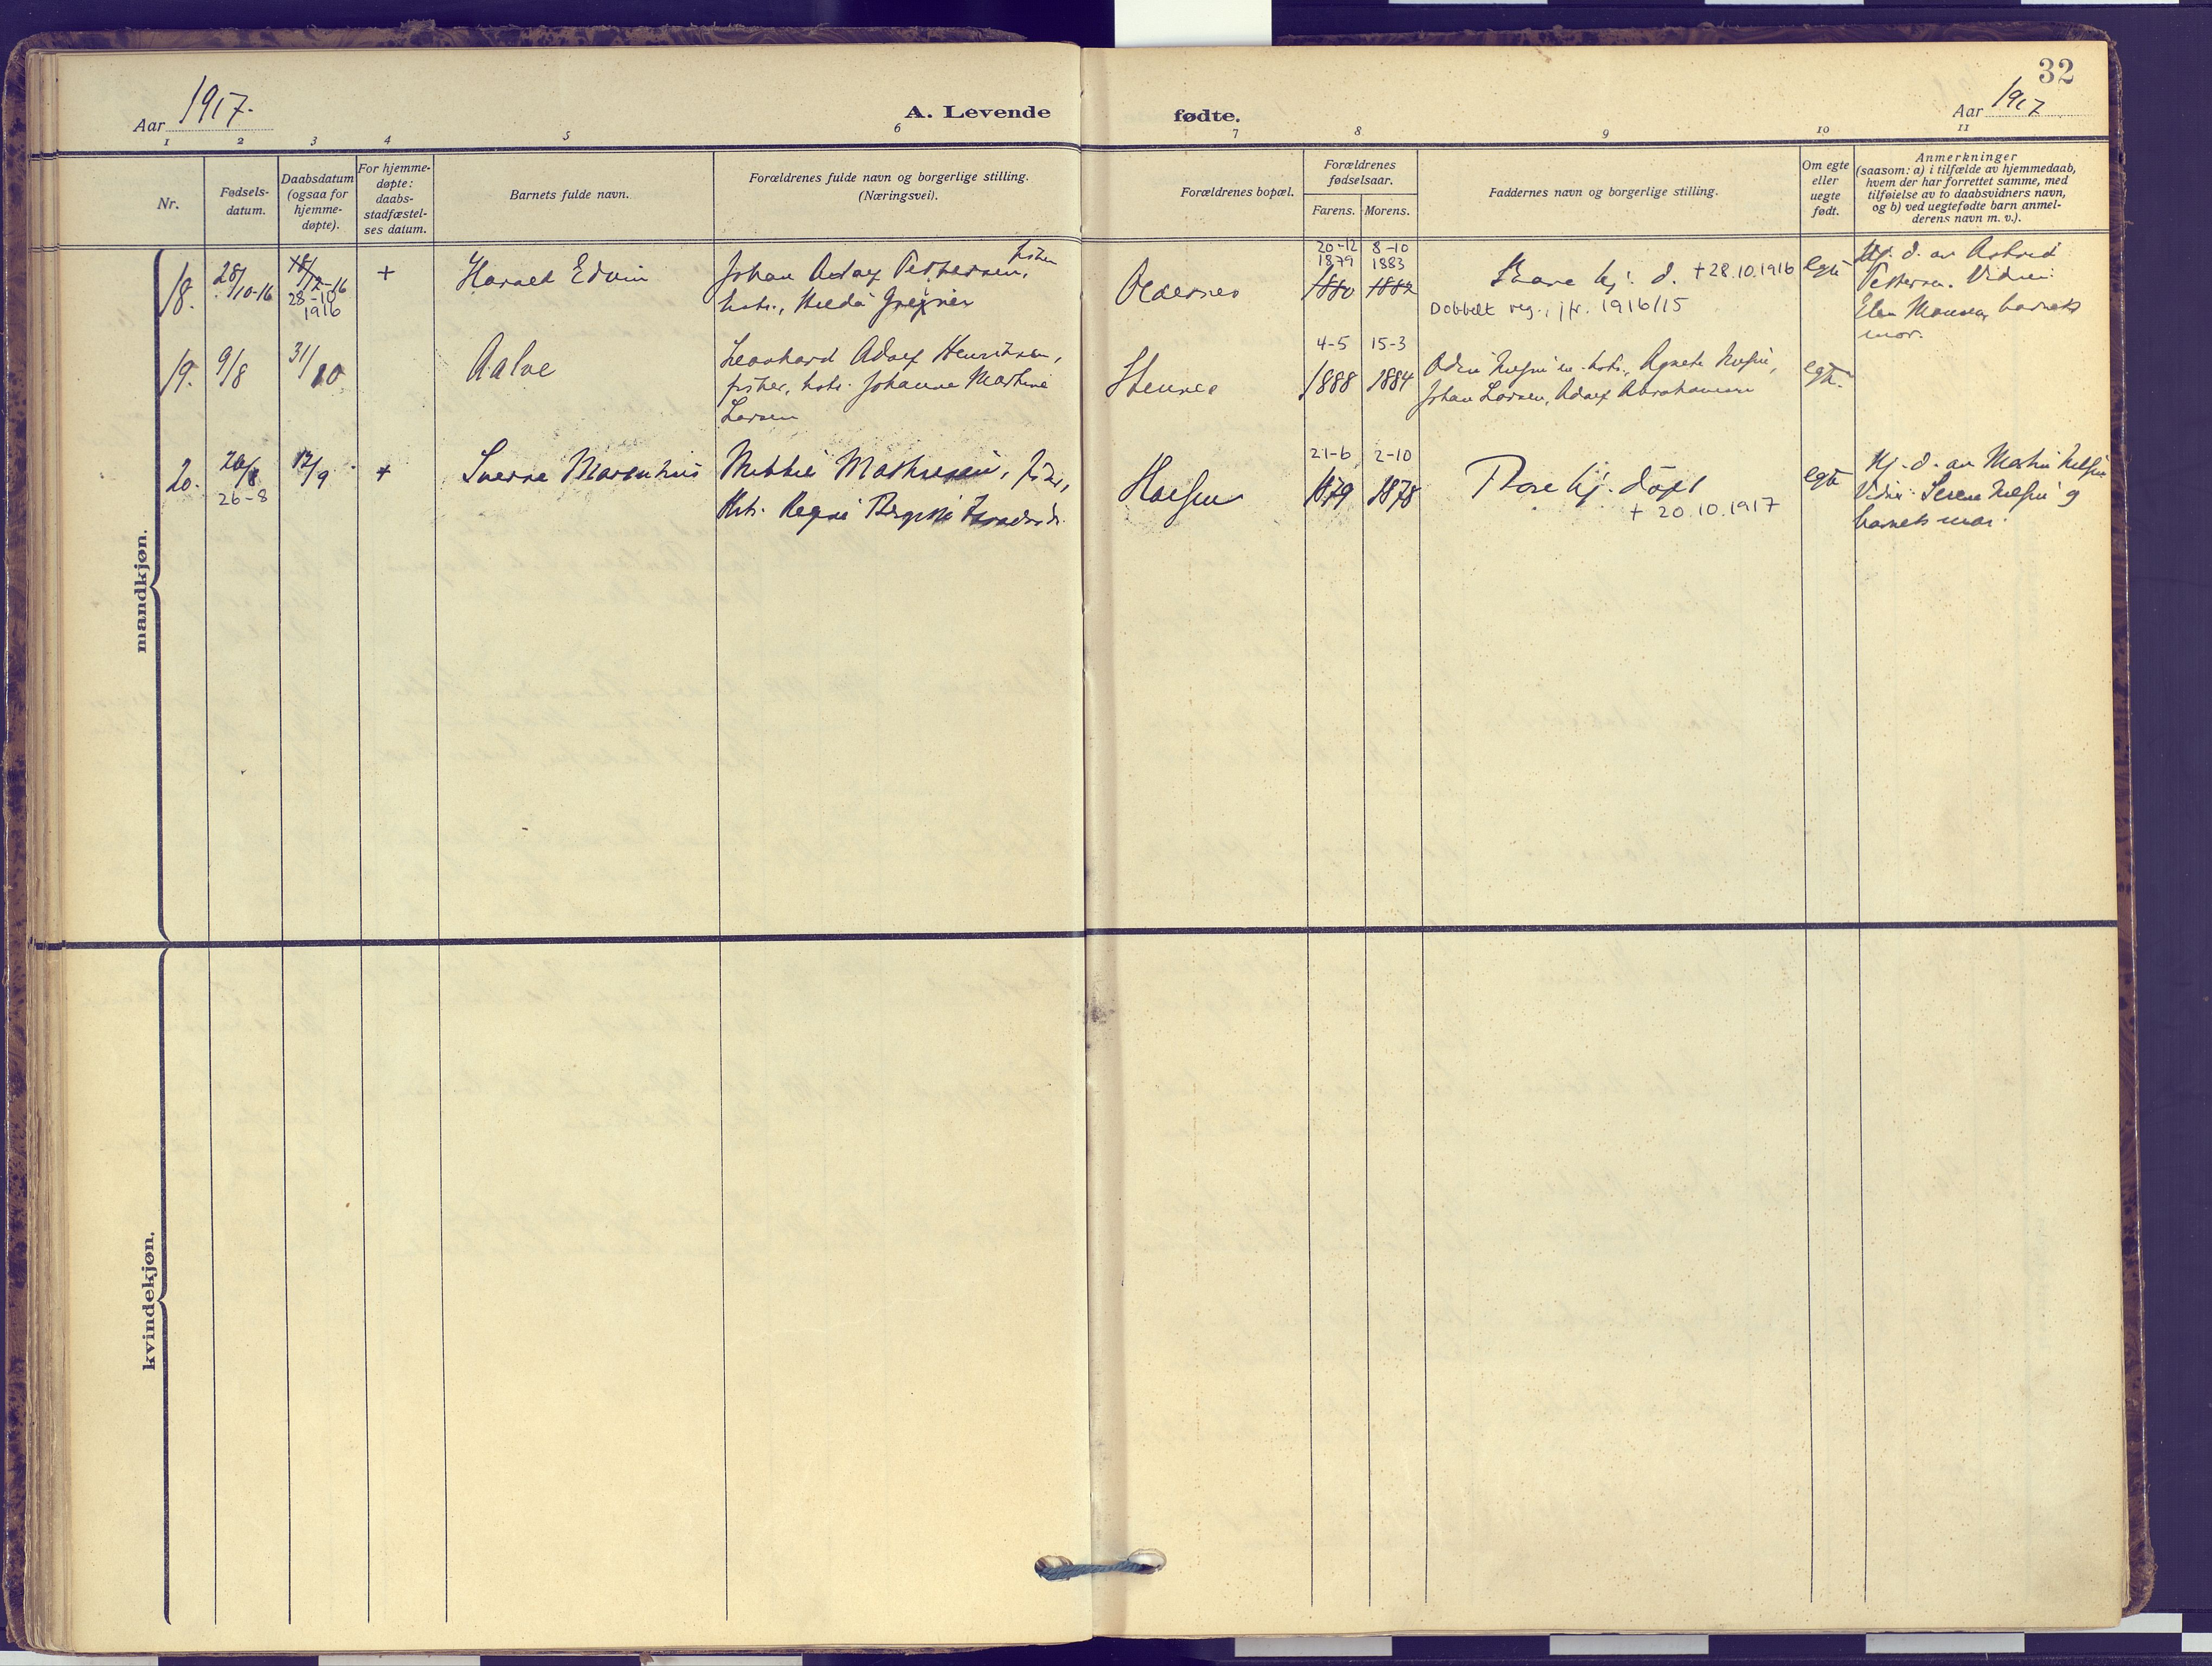 32
Aar 1917.
A. Levende fødte.
Aar 1917
1 2 3 4 5 6 7 8 9 10 11
Nr.
Fødsels-
datum.
Daabsdatum
(ogsaa for
hjemme-
døpte).
For hjemme-
døpte:
daabs-
stadfæstel-
ses datum.
Barnets fulde navn.
Forældrenes fulde navn og borgerlige stilling.
(Næringsvei).
Forældrenes bopæl.
Forældrenes
fødselsaar.
Farens. Morens.
Faddernes navn og borgerlige stilling.
Om egte
eller
uegte
født.
Anmerkninger
(saasom: a) i tilfælde av hjemmedaab,
hvem der har forrettet samme, med
tilføielse av to daabsvidners navn,
og b) ved uegtefødte barn anmel-
derens navn m. v.).
mandkjøn.
18.
28/10-16
18/12-16
28-10
1916
+
Harald Edvin
Johan Adolf Pettersen, fisker
hstr., Hulda
Oldernes
20-12
1879
1880
8-10
1883
1882
Bare hj. d. + 28.10.1916
Dobbelt reg., jfr. 1916/15
egte
Hj. d. av Astrid
Pettersen. Vidner:
barnets
mor.
19.
9/8
31/10
Aalve
Leonhard Adolf Henriksen,
fisker, hstr. Johanne Martine
Larsen
Stennes
4-5
1888
15-3
1884
Odin Nilsen m. hstr., Agnete Nilsen,
Johan Larsen, Adolf Abrahamsen
egte.
20.
26/8
26-8
12/9
+
Sverre Marenhius
Mikkel Mathisen, fisker,
Hst. Regine Bergitte
21-6
1879
2-10
1878
Bare hj. døpt
+ 20.10.1917
egte
Hj. d. av Martin Nilsen
Vidner: Nilsen og
barnets mor.
kvindekjøn.